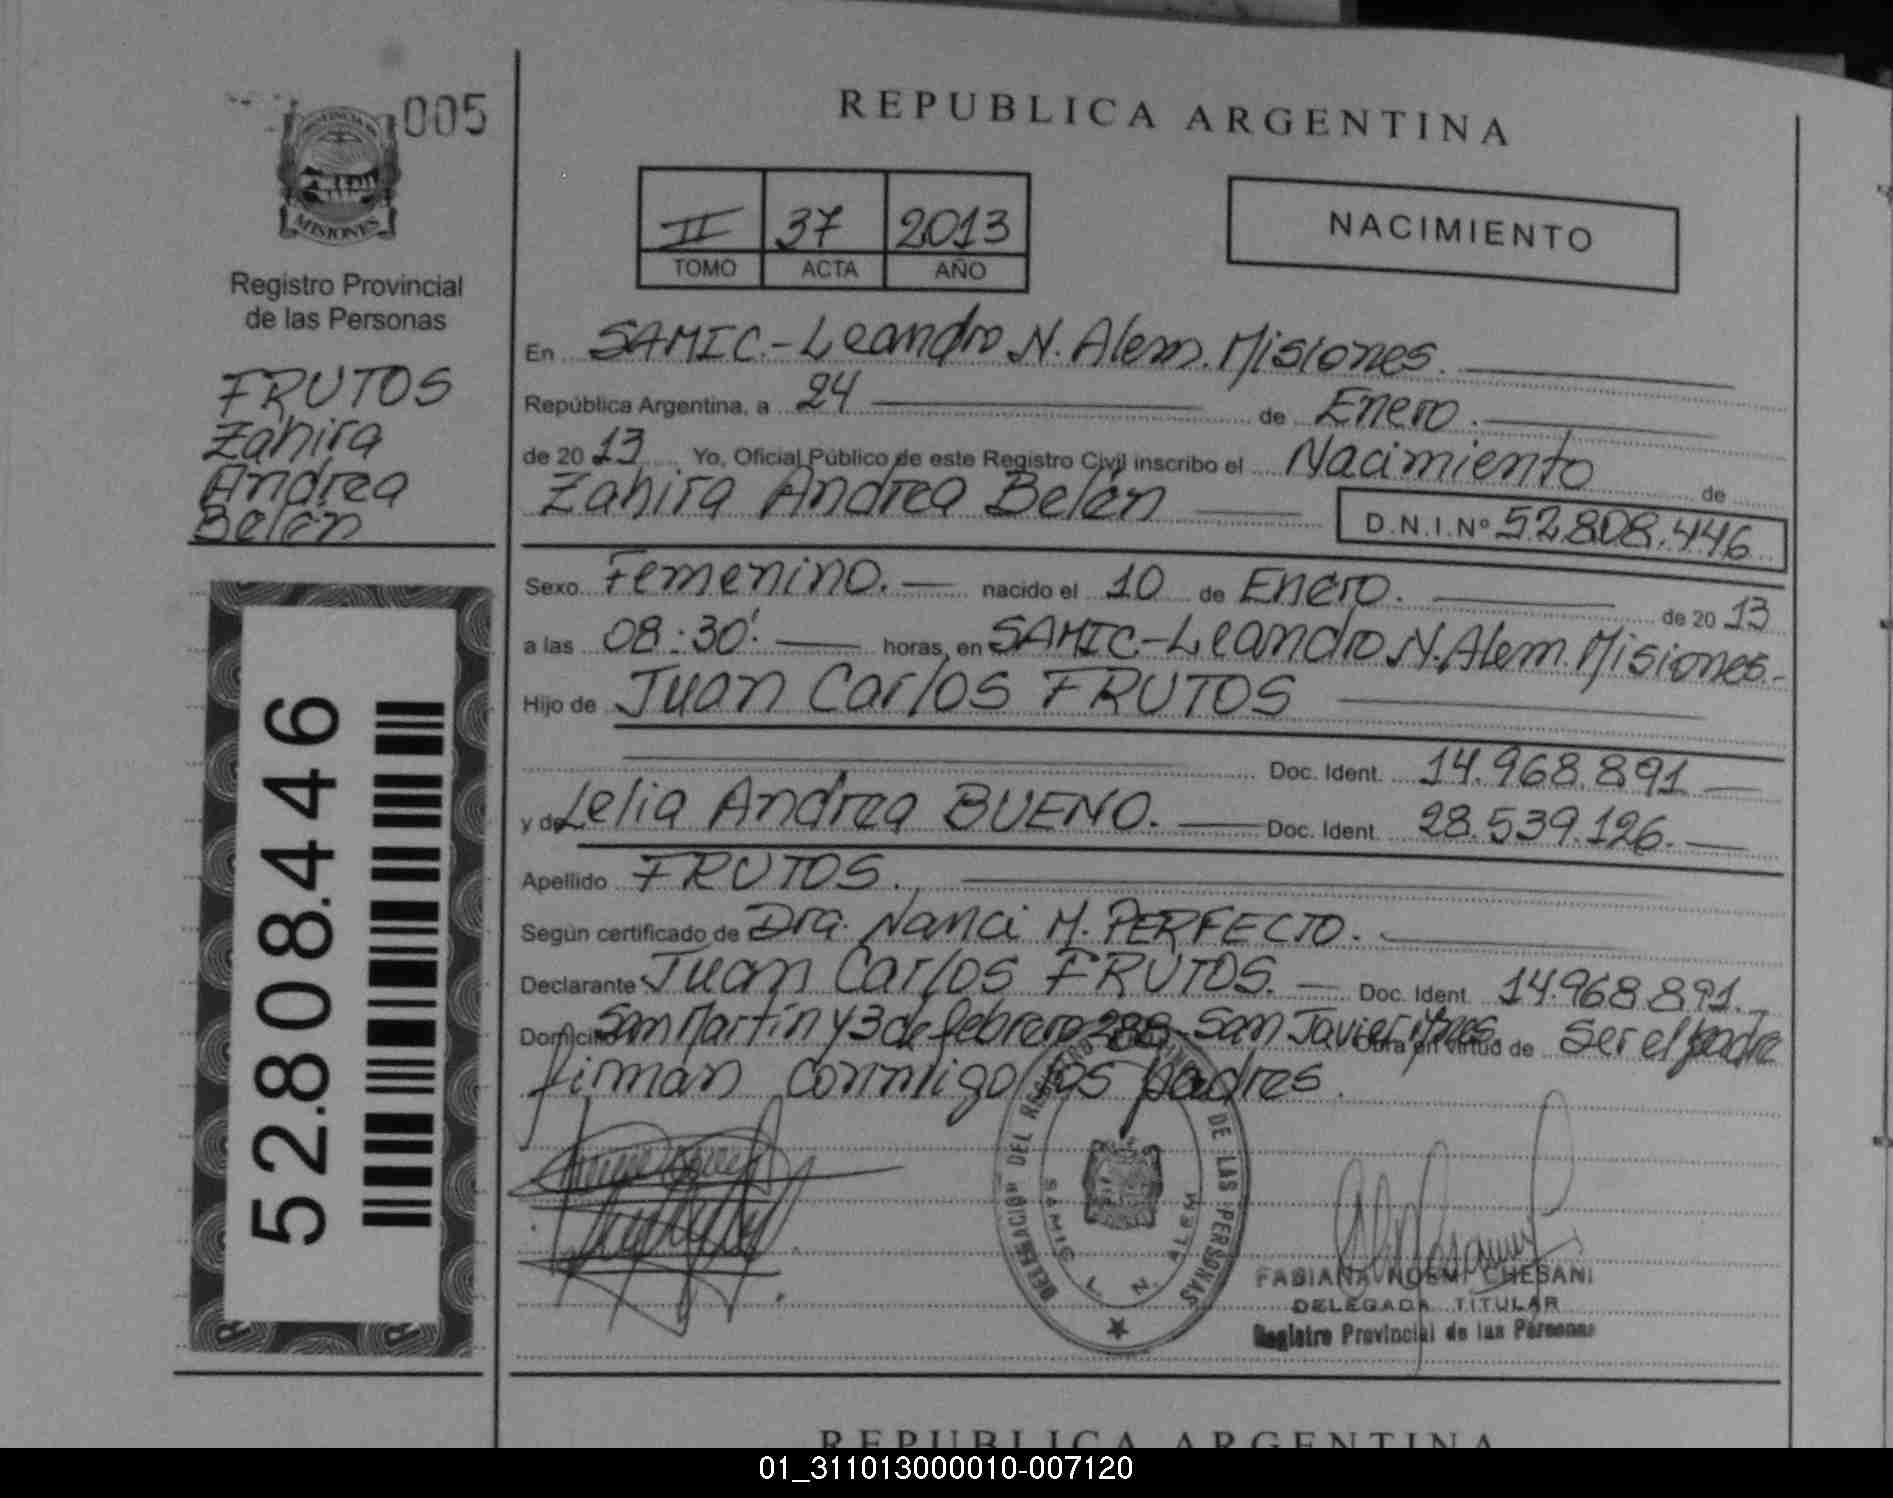 005
PROVINCIA DE
MISIONES
Registro Provincial
de las Personas
FRUTOS
Zahira
Andrea
Belén
52.808.446
REPUBLICA ARGENTINA
II 37 2013
TOMO ACTA AÑO
NACIMIENTO
En SAMIC.-Leandro N. Alem. Misiones.
República Argentina, a 24 de Enero.
de 20 13 Yo, Oficial Público de este Registro Civil inscribo el Nacimiento de
Zahira Andrea Belén D.N.I.Nº 52.808.446
Sexo Femenino. nacido el 10 de Enero. de 20 13
a las 08:30'. horas, en SAMIC-Leandro N. Alem. Misiones.-
Hijo de Juan Carlos FRUTOS
Doc. Ident. 14.968.891
y de Lelia Andrea BUENO. Doc. Ident. 28.539.126.
Apellido FRUTOS.
Según certificado de Dra. Nanci M. PERFECTO.
Declarante Juan Carlos FRUTOS. Doc. Ident. 14.968.891.
Domicilio San Martín y 3 de febrero 288- San Javier Mnes. Obra en virtud de ser el padre
firman conmigo los padres.
DELEGACION DEL REGISTRO DE LAS PERSONAS
SAMIC L. N. ALEM
FABIANA NOEMI CHESANI
DELEGADA TITULAR
Registro Provincial de las Personas
REPUBLICA ARGENTINA
01_311013000010-007120